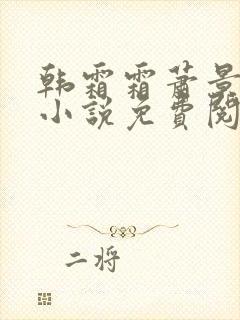 韩霜霜萧景
小说免费阅
二将